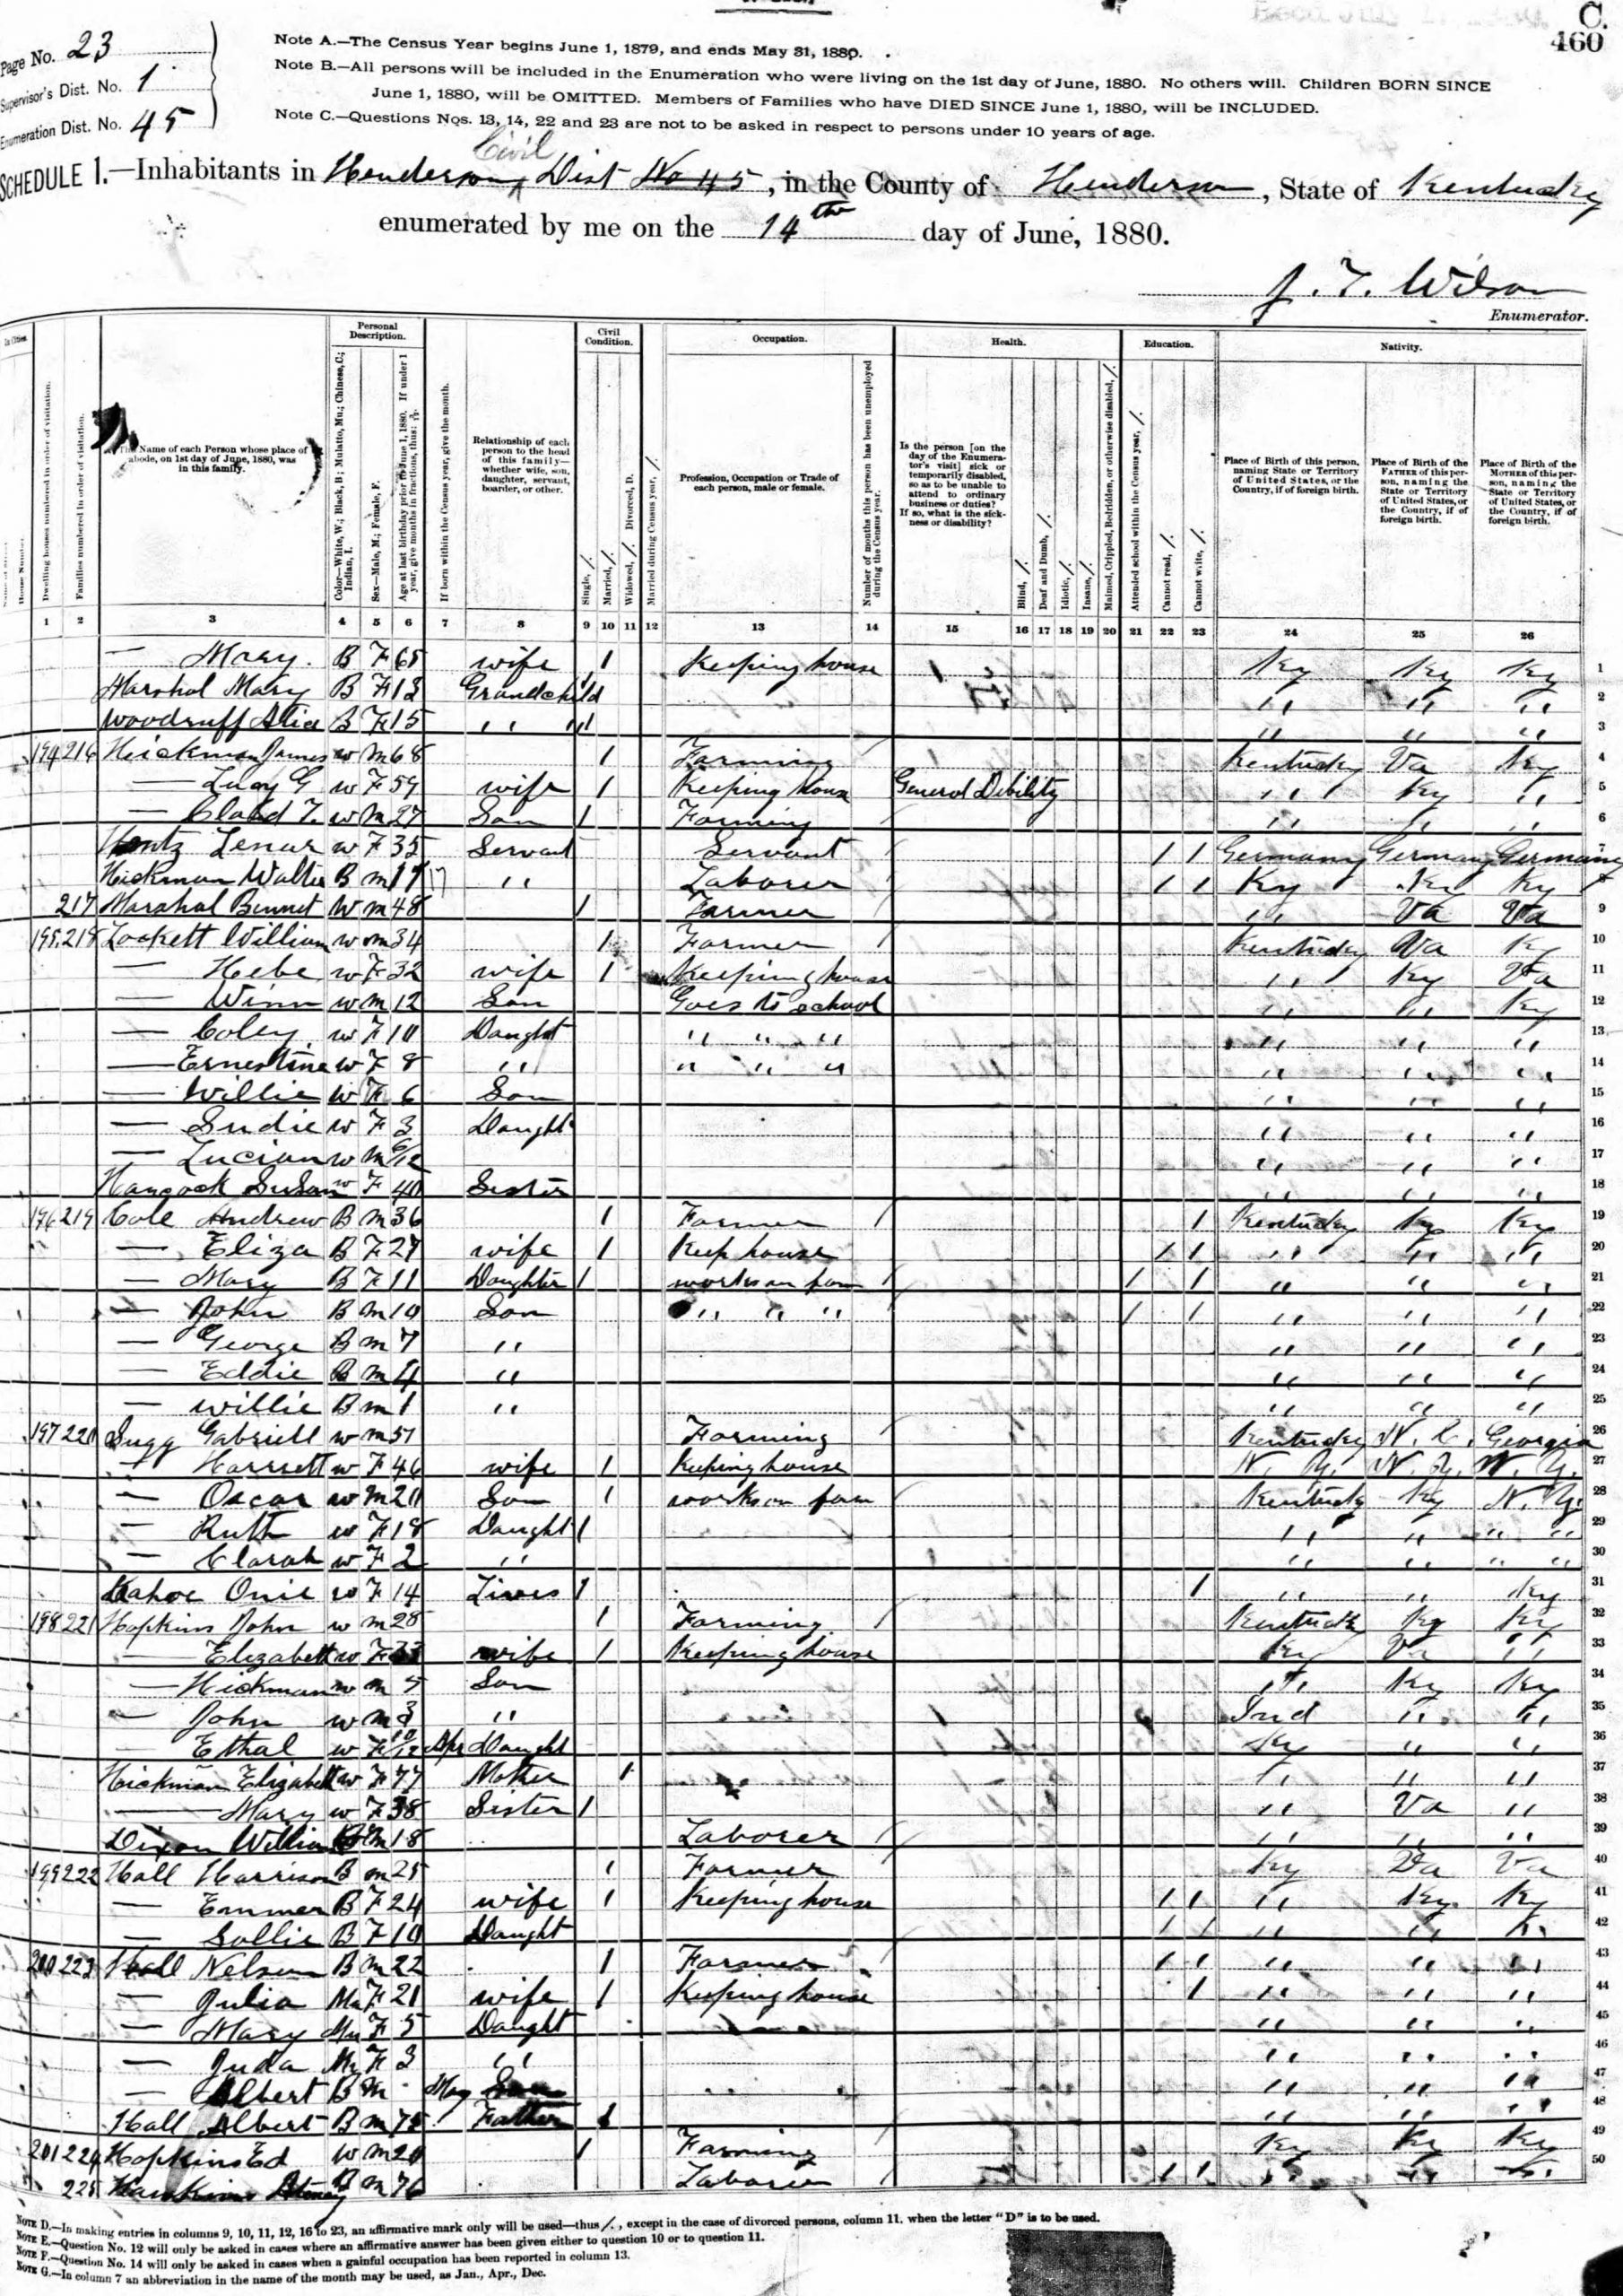 C.
460
Page No. 23
Supervisor's Dist. No. 1
Enumeration Dist. No. 45
Note A.—The Census Year begins June 1, 1879, and ends May 31, 1880.
Note B.—All persons will be included in the Enumeration who were living on the 1st day of June, 1880. No others will. Children BORN SINCE
June 1, 1880, will be OMITTED. Members of Families who have DIED SINCE June 1, 1880, will be INCLUDED.
Note C.—Questions Nos. 13, 14, 22 and 23 are not to be asked in respect to persons under 10 years of age.
Civil
SCHEDULE 1.—Inhabitants in Henderson Dist No 45, in the County of Henderson, State of Kentucky
enumerated by me on the 14th day of June, 1880.
J. T. Wilson
Enumerator.
Personal Description. Civil Condition. Occupation. Health. Education. Nativity.
Dwelling houses numbered in order of visitation.
Families numbered in order of visitation.
The Name of each Person whose place of abode, on 1st day of June, 1880, was in this family.
Color—White, W.; Black, B.; Mulatto, Mu.; Chinese, C.; Indian, I.
Sex—Male, M.; Female, F.
Age at last birthday prior to June 1, 1880. If under 1 year, give months in fractions, thus: 3/12
If born within the Census year, give the month.
Relationship of each person to the head of this family—whether wife, son, daughter, servant, boarder, or other.
Single, /.
Married, /.
Widowed, /. Divorced, D.
Married during Census year, /.
Profession, Occupation or Trade of each person, male or female.
Number of months this person has been unemployed during the Census year.
Is the person [on the day of the Enumerator's visit] sick or temporarily disabled, so as to be unable to attend to ordinary business or duties? If so, what is the sickness or disability?
Blind, /.
Deaf and Dumb, /.
Idiotic, /.
Insane, /.
Maimed, Crippled, Bedridden, or otherwise disabled, /.
Attended school within the Census year, /.
Cannot read, /.
Cannot write, /.
Place of Birth of this person, naming State or Territory of United States, or the Country, if of foreign birth.
Place of Birth of the FATHER of this person, naming the State or Territory of United States, or the Country, if of foreign birth.
Place of Birth of the MOTHER of this person, naming the State or Territory of United States, or the Country, if of foreign birth.
1 2 3 4 5 6 7 8 9 10 11 12 13 14 15 16 17 18 19 20 21 22 23 24 25 26
— Mary. B F 65 wife 1 Keeping house Ky Ky Ky 1
Marshal Mary B F 13 Grandchild " " " 2
Woodruff Alice B F 15 " " 1 " " " 3
194 216 Hickman James w m 68 1 Farming Kentucky Va Ky 4
— Lucy G w F 59 wife 1 Keeping house General Debility " Ky " 5
— Claud T. w m 27 Son 1 Farming " " " 6
w F 35 Servant Servant 1 1 Germany Germany Germany 7
Hickman Walter B m 17 " Laborer 1 1 Ky Ky Ky 8
217 Marshal Bennet W m 48 1 Farmer " Va Va 9
195 218 Lockett William w m 34 1 Farmer Kentucky Va Ky 10
— Hebe w F 32 wife 1 Keeping house " Ky Va 11
— Winn w m 12 Son Goes to school " " Ky 12
— Coley w F 10 Daught " " " " " " 13
— Ernestine w F 8 " " " " " " " 14
— Willie w 6 Son " " " 15
— Sudie w F 3 Daught " " " 16
— Lucian w m /12 " " " 17
Hancock Susan w F 40 Sister " " " 18
196 219 Cole Andrew B m 36 1 Farmer 1 Kentucky Ky Ky 19
— Eliza B F 27 wife 1 Keep house 1 1 " " " 20
— Mary B F 11 Daughter 1 works on farm 1 1 " " " 21
— John B m 10 Son " " " 1 1 " " " 22
— George B m 7 " " " " 23
— Eddie B m 4 " " " " 24
— Willie B m 1 " " " " 25
197 220 Sugg Gabriell w m 51 Farming Kentucky N. C. Georgia 26
— Harrsett w F 46 wife 1 Keeping house N. Y. N. Y. N. Y. 27
— Oscar w m 20 Son 1 works on farm Kentucky Ky N. Y. 28
— Ruth w F 18 Daught 1 " " " " 29
— Clarah w F 2 " " " " " 30
Kahoe Onie w F 14 Lives 1 1 " " Ky 31
198 221 Hopkins John w m 28 1 Farming Kentuck Ky Ky 32
— Elizabeth w F wife 1 Keeping house Ky Va " 33
— Hickman w m 5 Son " Ky Ky 34
— John w m 3 " Ind " " 35
— Ethal w F 10/12 Daught Ky " " 36
Hickman Elizabeth w F 77 Mother 1 " " " 37
— Mary w F 38 Sister 1 " Va " 38
Dixon William m 18 Laborer " " " 39
199 222 Hall Harrison B m 25 1 Farmer Ky Va Va 40
— Emmer B F 24 wife 1 Keeping house 1 1 " Ky Ky 41
— Sollie B F 10 Daught 1 1 " " " 42
200 223 Hall Nelson B m 22 1 Farmer 1 1 " " " 43
— Julia Mu F 21 wife 1 Keeping house 1 " " " 44
— Mary Mu F 5 Daught " " " 45
— Juda Mu F 3 " " " " 46
— Albert B m May Son " " " 47
Hall Albert B m 75 Father 1 " " " 48
201 224 Hopkins Ed W m 20 1 Farming Ky Ky Ky 49
225 Hawkins B m 76 Laborer 1 1 " " " 50
Note D.—In making entries in columns 9, 10, 11, 12, 16 to 23, an affirmative mark only will be used—thus /., except in the case of divorced persons, column 11, when the letter "D" is to be used.
Note E.—Question No. 12 will only be asked in cases where an affirmative answer has been given either to question 10 or to question 11.
Note F.—Question No. 14 will only be asked in cases when a gainful occupation has been reported in column 13.
Note G.—In column 7 an abbreviation in the name of the month may be used, as Jan., Apr., Dec.